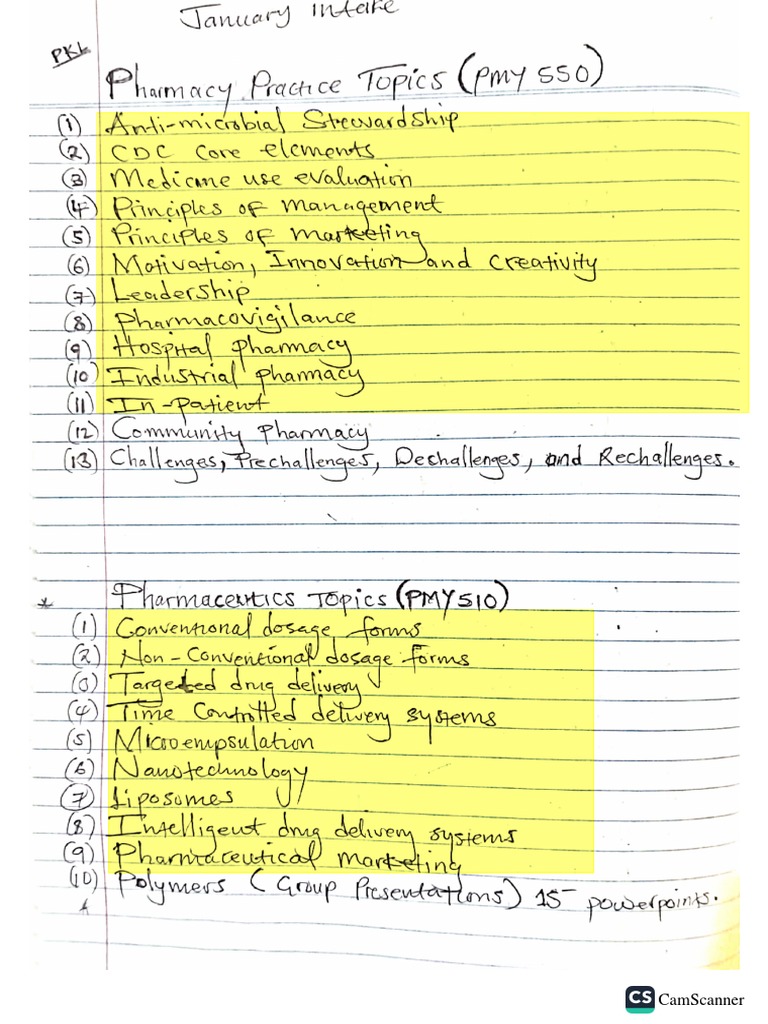 January intake
PKL
Pharmacy Practice Topics (PMY 550)
(1) Anti-microbial Stewardship
(2) CDC core elements
(3) Medicine use evaluation
(4) Principles of management
(5) Principles of marketing
(6) Motivation, Innovation and creativity
(7) Leadership
(8) Pharmacovigilance
(9) Hospital pharmacy
(10) Industrial pharmacy
(11) In-patient
(12) Community pharmacy
(13) Challenges, Prechallenges, Dechallenges, and Rechallenges.
* Pharmaceutics Topics (PMY510)
(1) Conventional dosage forms
(2) Non-Conventional dosage forms
(3) Targeted drug delivery
(4) Time Controlled delivery systems
(5) Microempsulation
(6) Nanotechnology
(7) Liposomes
(8) Intelligent drug delivery systems
(9) Pharmaceutical marketing
(10) Polymers (Group Presentations) 15 powerpoints.
CS CamScanner